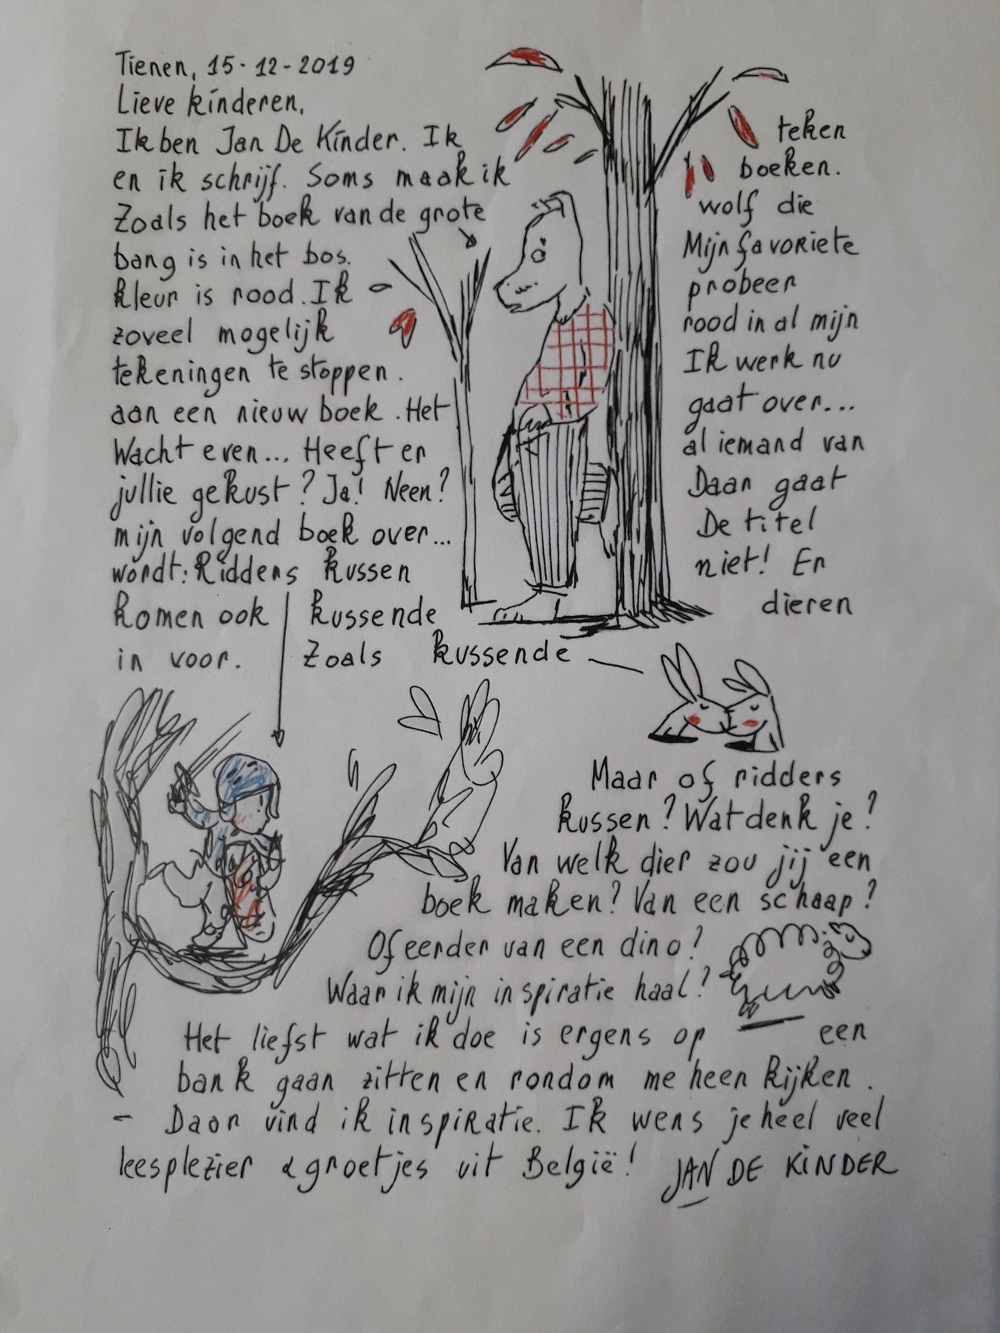 Tienen, 15-12-2019
Lieve kinderen,
Ik ben Jan De Kinder. Ik teken
en ik schrijf. Soms maak ik boeken.
Zoals het boek van de grote wolf die
bang is in het bos. Mijn favoriete
kleur is rood. Ik probeer
zoveel mogelijk rood in al mijn
tekeningen te stoppen. Ik werk nu
aan een nieuw boek. Het gaat over...
Wacht even... Heeft er al iemand van
jullie gekust? Ja! Neen? Daar gaat
mijn volgend boek over... De titel
wordt: Ridders kussen niet! Er
komen ook kussende dieren
in voor. Zoals kussende
Maar of ridders
kussen? Wat denk je?
Van welk dier zou jij een
boek maken? Van een schaap?
Of eerder van een dino?
Waar ik mijn inspiratie haal?
Het liefst wat ik doe is ergens op een
bank gaan zitten en rondom me heen kijken.
- Daar vind ik inspiratie. Ik wens je heel veel
leesplezier & groetjes uit België! JAN DE KINDER